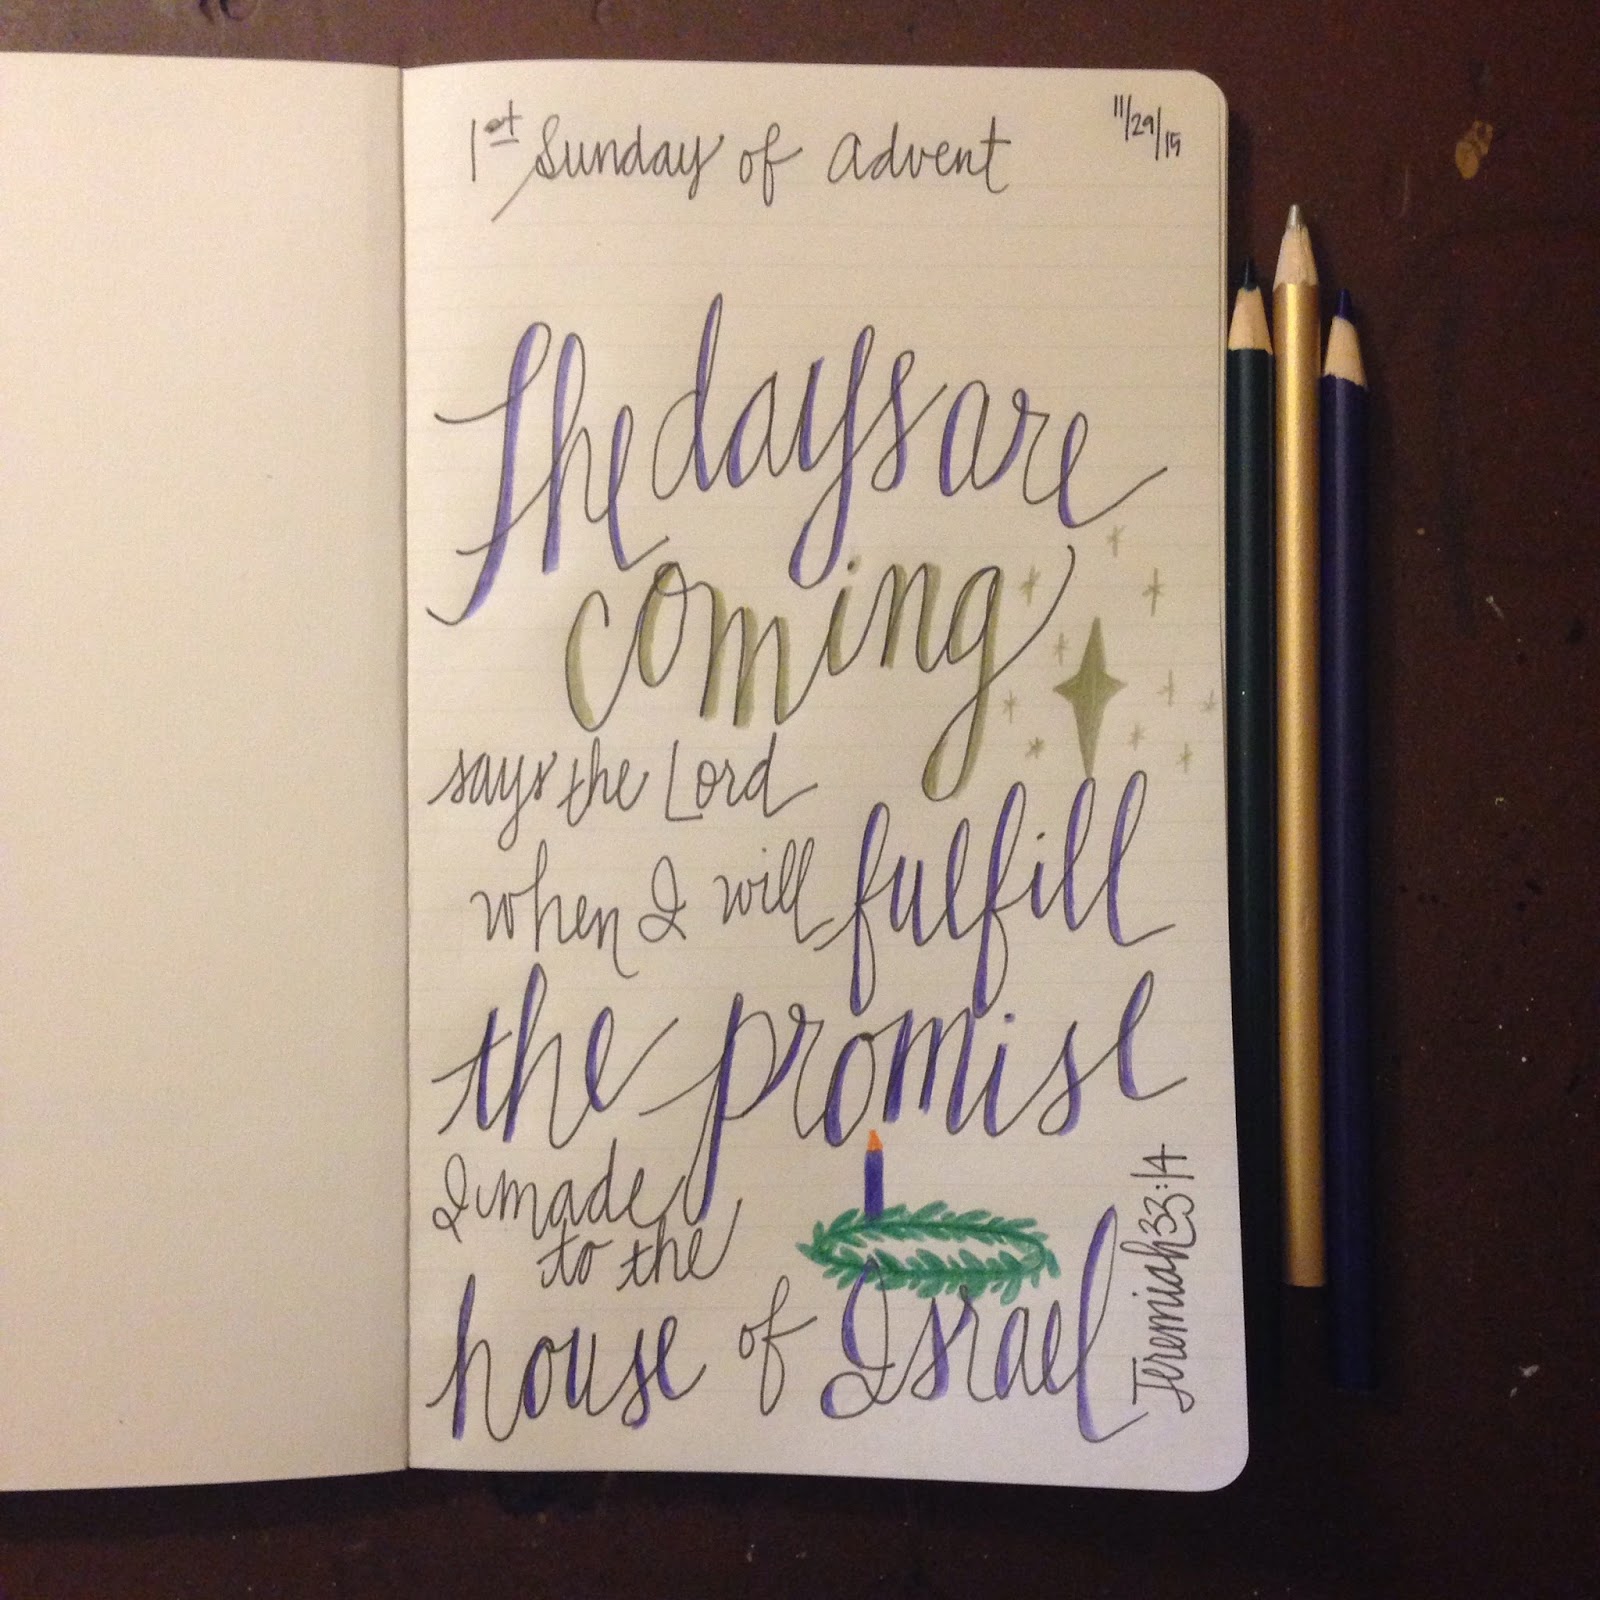 1st Sunday of Advent
11/29/15
The days are
coming
says the Lord
when I will fulfill
the promise
I made
to the
house of Israel
Jeremiah 33:14